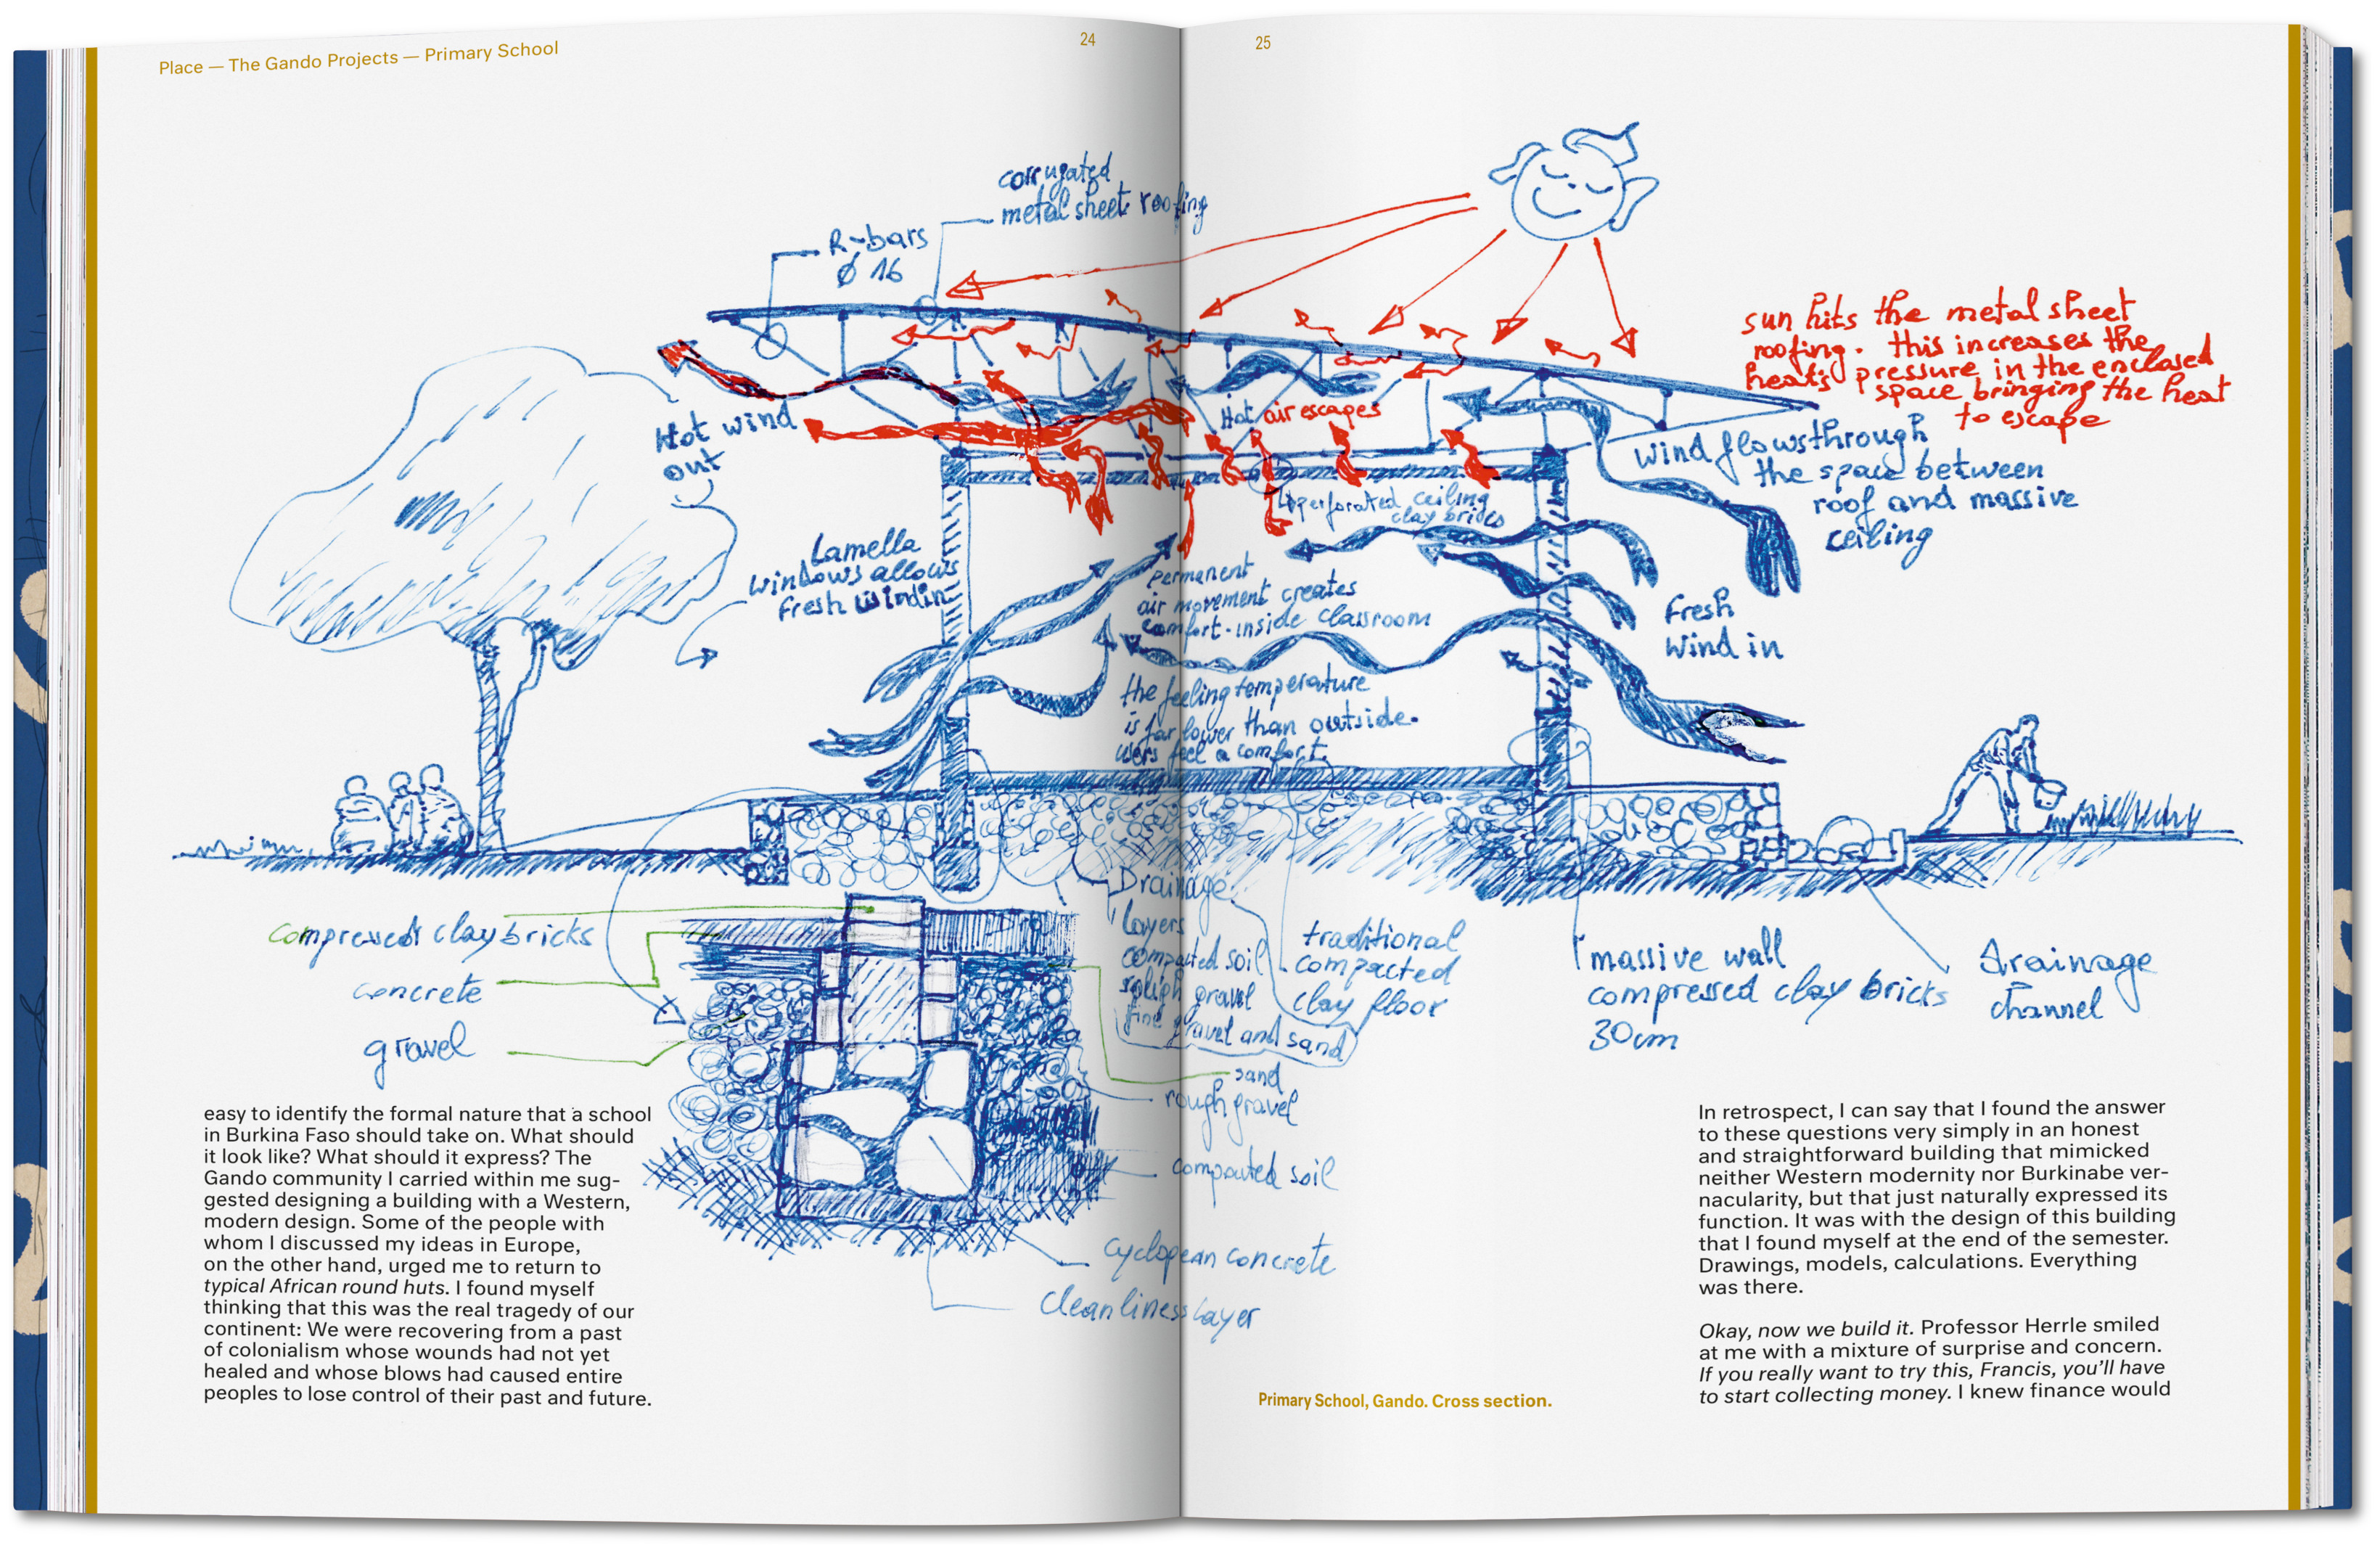 Place — The Gando Projects — Primary School
24
25
corrugated
metal sheet roofing
R-bars
Ø 16
sun hits the metal sheet
roofing. this increases the
heat's pressure in the enclosed
space bringing the heat
to escape
Hot wind
out
Hot air escapes
wind flows through
the space between
roof and massive
ceiling
perforated ceiling
clay brics
Lamella
windows allows
fresh wind in
permanent
air movement creates
comfort inside classroom
fresh
wind in
the feeling temperature
is far lower than outside.
users feel a comfort.
compressed clay bricks
concrete
gravel
Drainage
layers
compacted soil
rough gravel
fine gravel and sand
traditional
compacted
clay floor
massive wall
compressed clay bricks
30cm
drainage
channel
sand
rough gravel
compacted soil
cyclopean concrete
cleanliness layer
easy to identify the formal nature that a school
in Burkina Faso should take on. What should
it look like? What should it express? The
Gando community I carried within me sug-
gested designing a building with a Western,
modern design. Some of the people with
whom I discussed my ideas in Europe,
on the other hand, urged me to return to
typical African round huts. I found myself
thinking that this was the real tragedy of our
continent: We were recovering from a past
of colonialism whose wounds had not yet
healed and whose blows had caused entire
peoples to lose control of their past and future.
Primary School, Gando. Cross section.
In retrospect, I can say that I found the answer
to these questions very simply in an honest
and straightforward building that mimicked
neither Western modernity nor Burkinabe ver-
nacularity, but that just naturally expressed its
function. It was with the design of this building
that I found myself at the end of the semester.
Drawings, models, calculations. Everything
was there.
Okay, now we build it. Professor Herrle smiled
at me with a mixture of surprise and concern.
If you really want to try this, Francis, you'll have
to start collecting money. I knew finance would